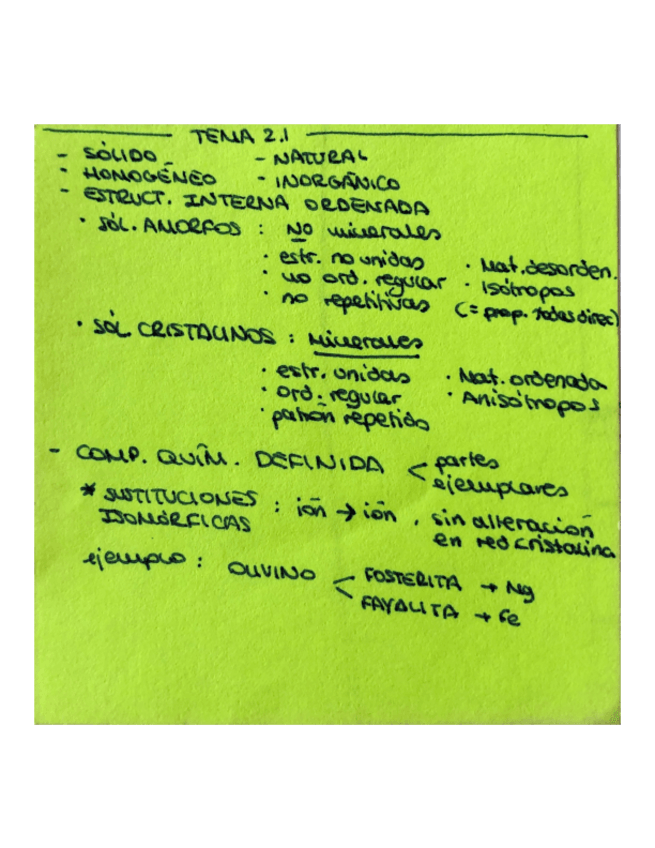 TEMA 2.1
- SÓLIDO - NATURAL
- HOMOGÉNEO - INORGÁNICO
- ESTRUCT. INTERNA ORDENADA
· SÓL. AMORFOS : NO minerales
· estr. no unidas · Mat. desorden.
· no ord. regular · Isótropos
· no repetitivas (= prop. todas direc)
· SÓL CRISTALINOS : Minerales
· estr. unidas · Mat. ordenada
· ord. regular · Anisótropos
· patrón repetido
- COMP. QUÍM. DEFINIDA < partes
ejemplares
* SUSTITUCIONES ISOMÓRFICAS : ión → ión , sin alteración
en red cristalina
ejemplo : OLIVINO < FOSTERITA → Mg
FAYALITA → Fe